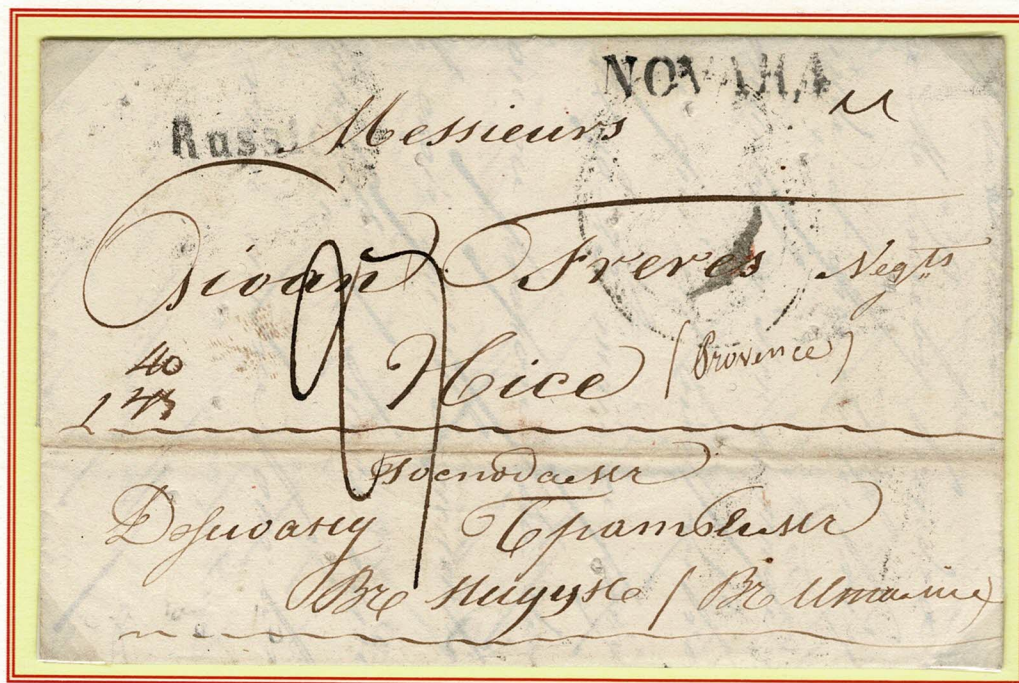 NOVARA
Russie
Messieurs
Frères Negts
Nice (Provence)
40
Господамъ
Братьямъ
Въ Ниццѣ (Въ Италіи)